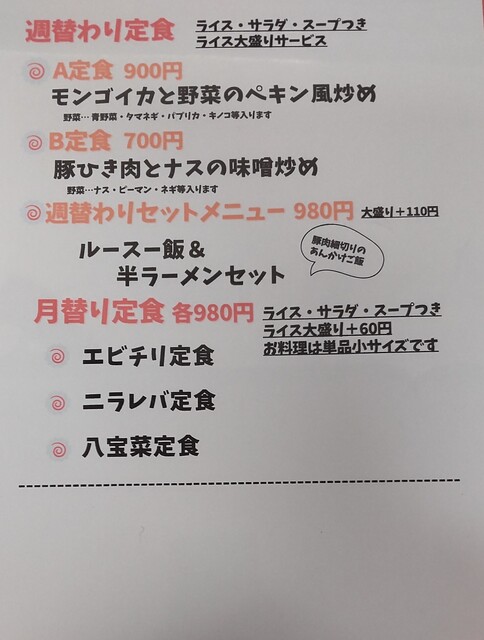 週替わり定食
ライス・サラダ・スープつき
ライス大盛りサービス
A定食 900円
モンゴイカと野菜のペキン風炒め
野菜…青野菜・タマネギ・パプリカ・キノコ等入ります
B定食 700円
豚ひき肉とナスの味噌炒め
野菜…ナス・ピーマン・ネギ等入ります
週替わりセットメニュー 980円 大盛り+110円
ルースー飯&
半ラーメンセット
豚肉細切りの
あんかけご飯
月替り定食 各980円
ライス・サラダ・スープつき
ライス大盛り+60円
お料理は単品小サイズです
エビチリ定食
ニラレバ定食
八宝菜定食